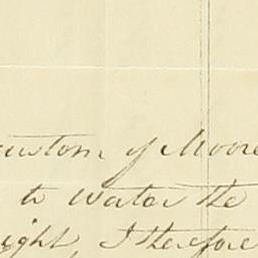 custom of Moore
to water the
ight, I therefore